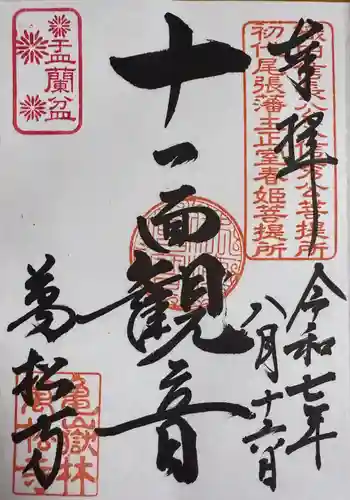 奉拝
初代尾張藩主正室春姫菩提所
令和七年
八月十六日
十一面観音
盂蘭盆
萬松寺
亀嶽林
萬松寺